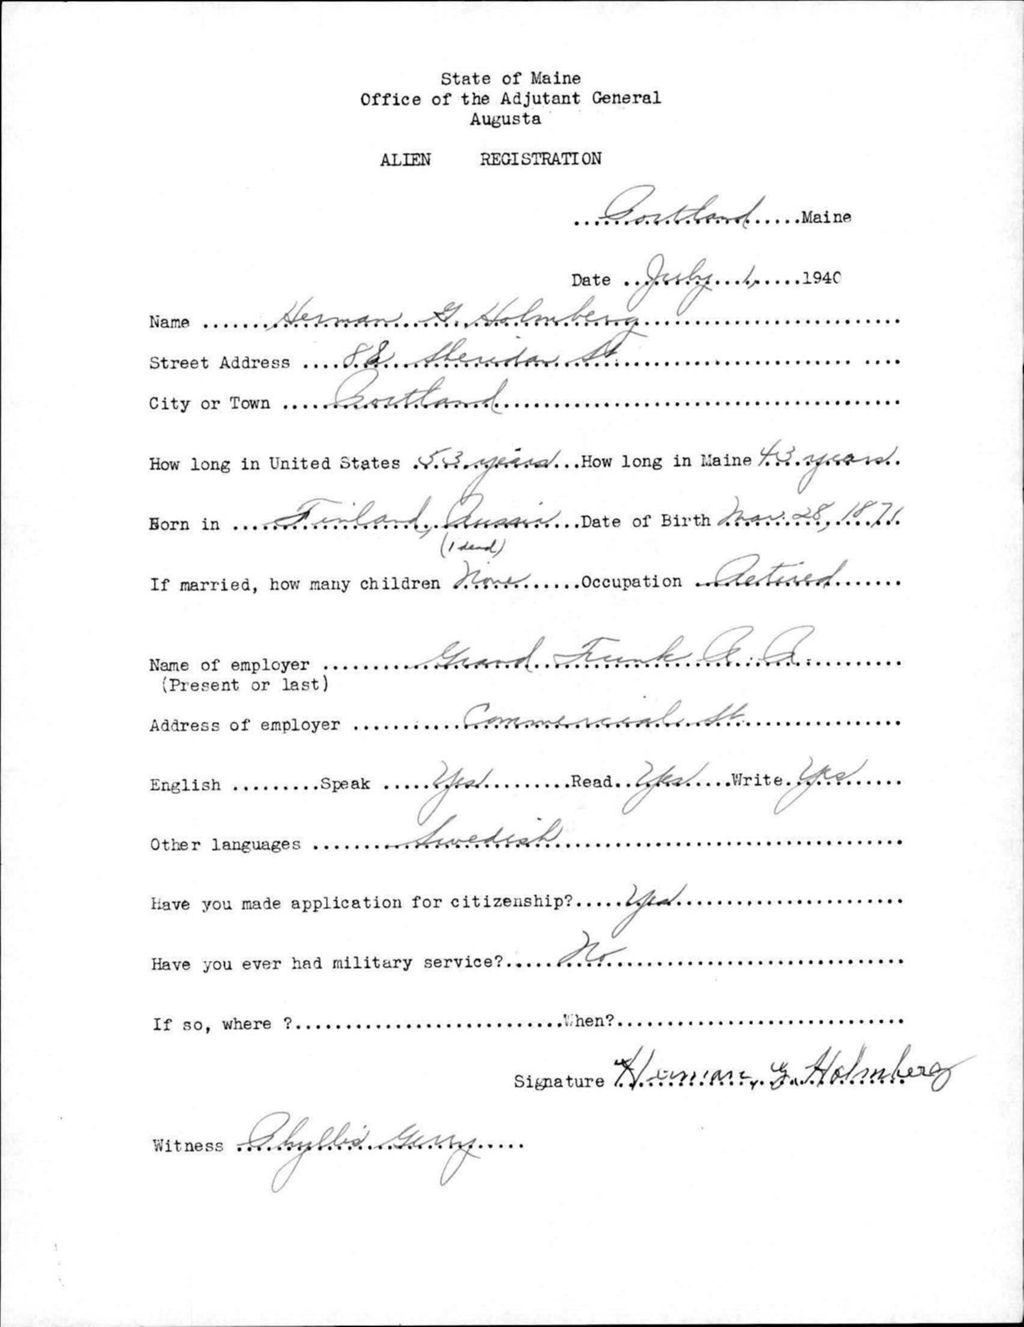 State of Maine
Office of the Adjutant General
Augusta
ALIEN REGISTRATION
Portland Maine
Date July 1, 1940
Name Herman G. Holmberg
Street Address Sheridan St.
City or Town Portland
How long in United States 53 years How long in Maine 43 years
Born in Finland, Russia Date of Birth Nov. 28, 1871
(1 dead)
If married, how many children None Occupation Retired
Name of employer Grand Trunk R. R.
(Present or last)
Address of employer Commercial St.
English Speak Yes Read Yes Write Yes
Other languages Swedish
Have you made application for citizenship? Yes
Have you ever had military service? No
If so, where ? When?
Signature Herman, G. Holmberg
Witness Phyllis Gerry